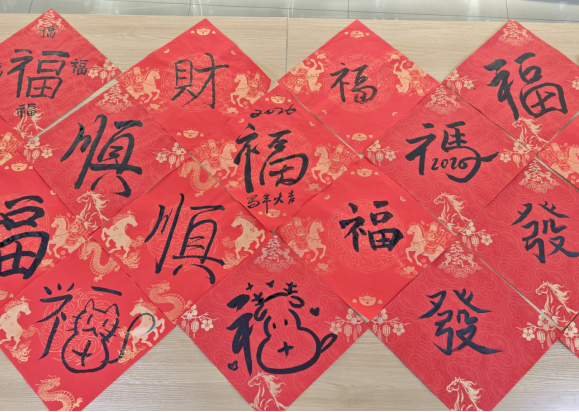 福
福
福
福
財
福
福
順
2026
福
马年大吉
禡
2026
福
順
福
發
發